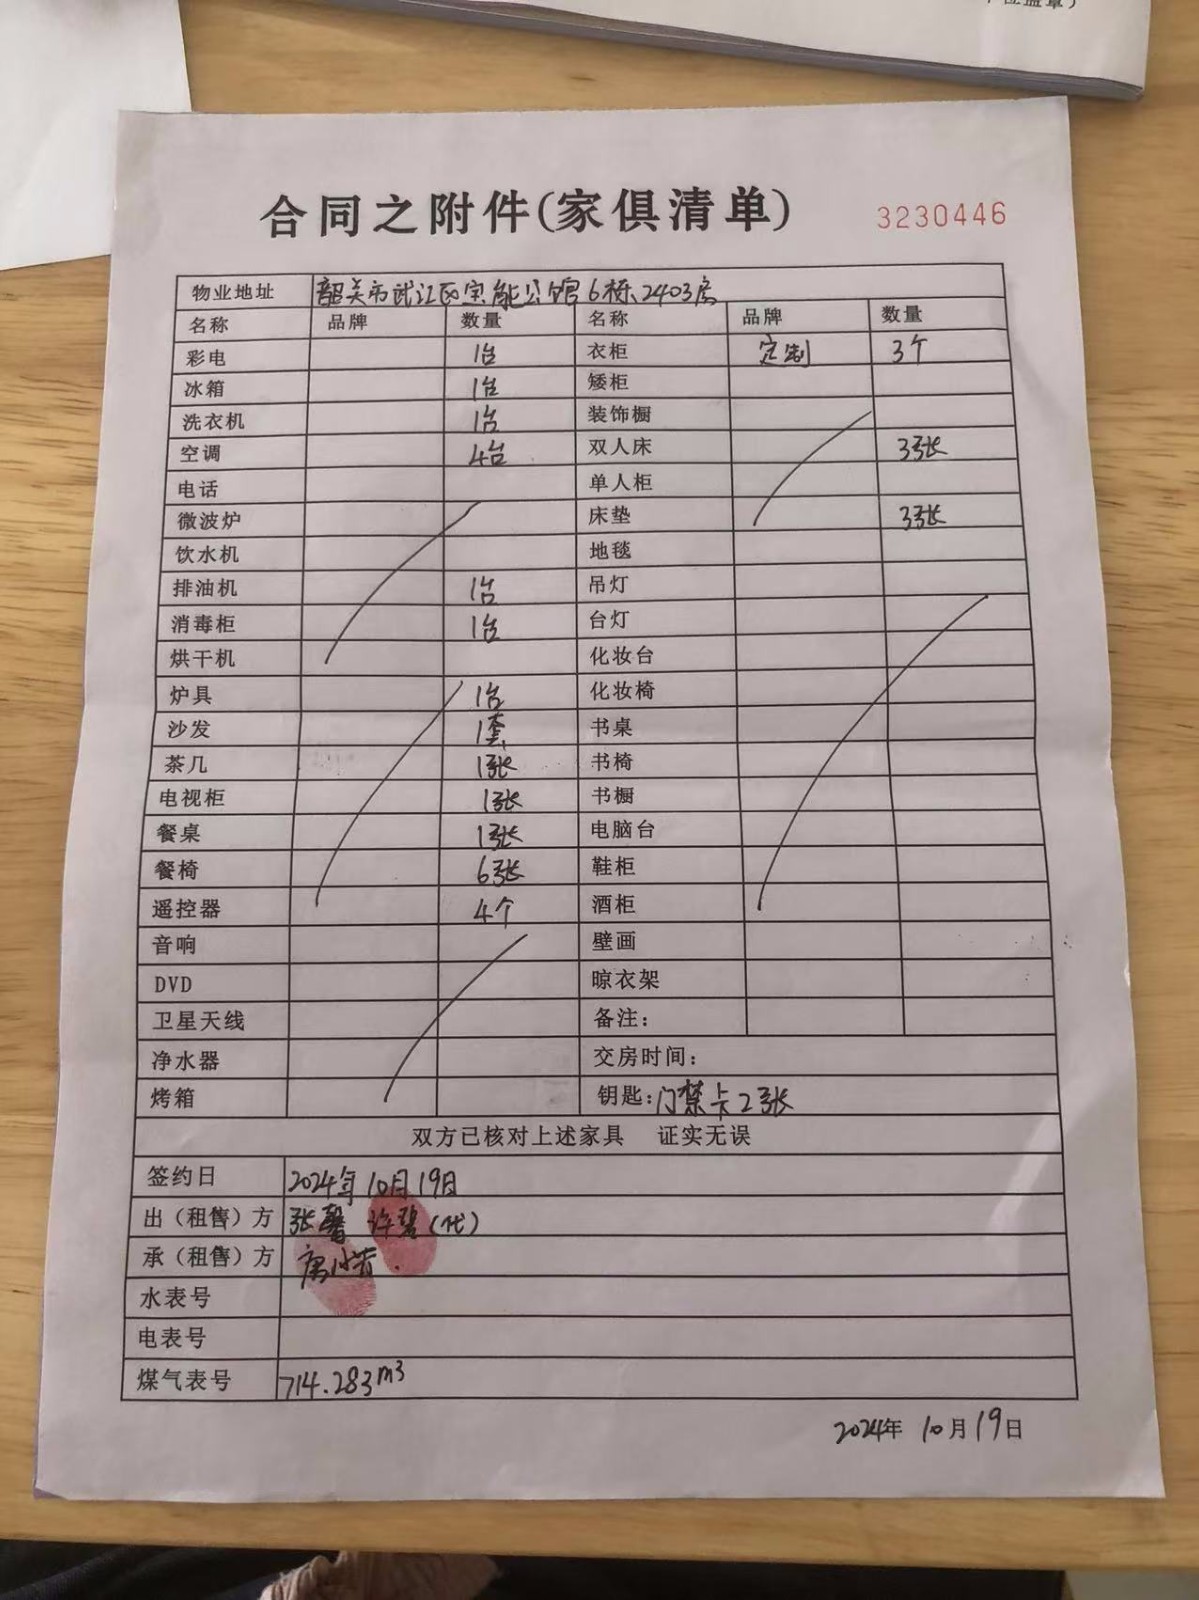 位盖章）
合同之附件(家俱清单)
3230446
物业地址 韶关市武江区宝能公馆6栋、2403房
名称 品牌 数量 名称 品牌 数量
彩电 1台 衣柜 定制 3个
冰箱 1台 矮柜
洗衣机 1台 装饰橱
空调 4台 双人床 3张
电话 单人柜
微波炉 床垫 3张
饮水机 地毯
排油机 1台 吊灯
消毒柜 1台 台灯
烘干机 化妆台
炉具 1台 化妆椅
沙发 1套 书桌
茶几 1张 书椅
电视柜 1张 书橱
餐桌 1张 电脑台
餐椅 6张 鞋柜
遥控器 4个 酒柜
音响 壁画
DVD 晾衣架
卫星天线 备注：
净水器 交房时间：
烤箱 钥匙：门禁卡2张
双方已核对上述家具 证实无误
签约日 2024年10月19日
出（租售）方 张馨 许碧（代）
承（租售）方
水表号
电表号
煤气表号 714.283m3
2024年10月19日